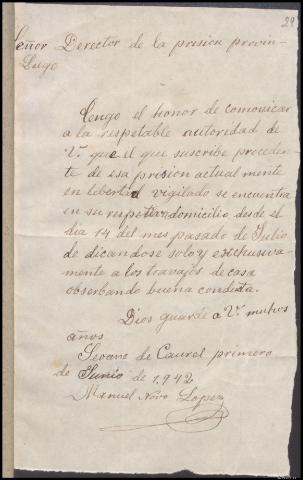 29
Señor Derector de la prision provin-
Lugo
Tengo el honor de comonicar
a la respetable autoridad de
V. que el que suscribe proceden
te de esa presion actual mente
en libertad vigilado se encuentra
en su respetivo domicilio desde el
dia 14 del mes pasado de Julio
de dicandose solo y exschusiva-
mente a los travajos de casa
obserbando buena condeta.
Dios guarde a V. muhos
años
Seoane de Caurel primero
de Junio de 1,942
Manuel Novo Lopez